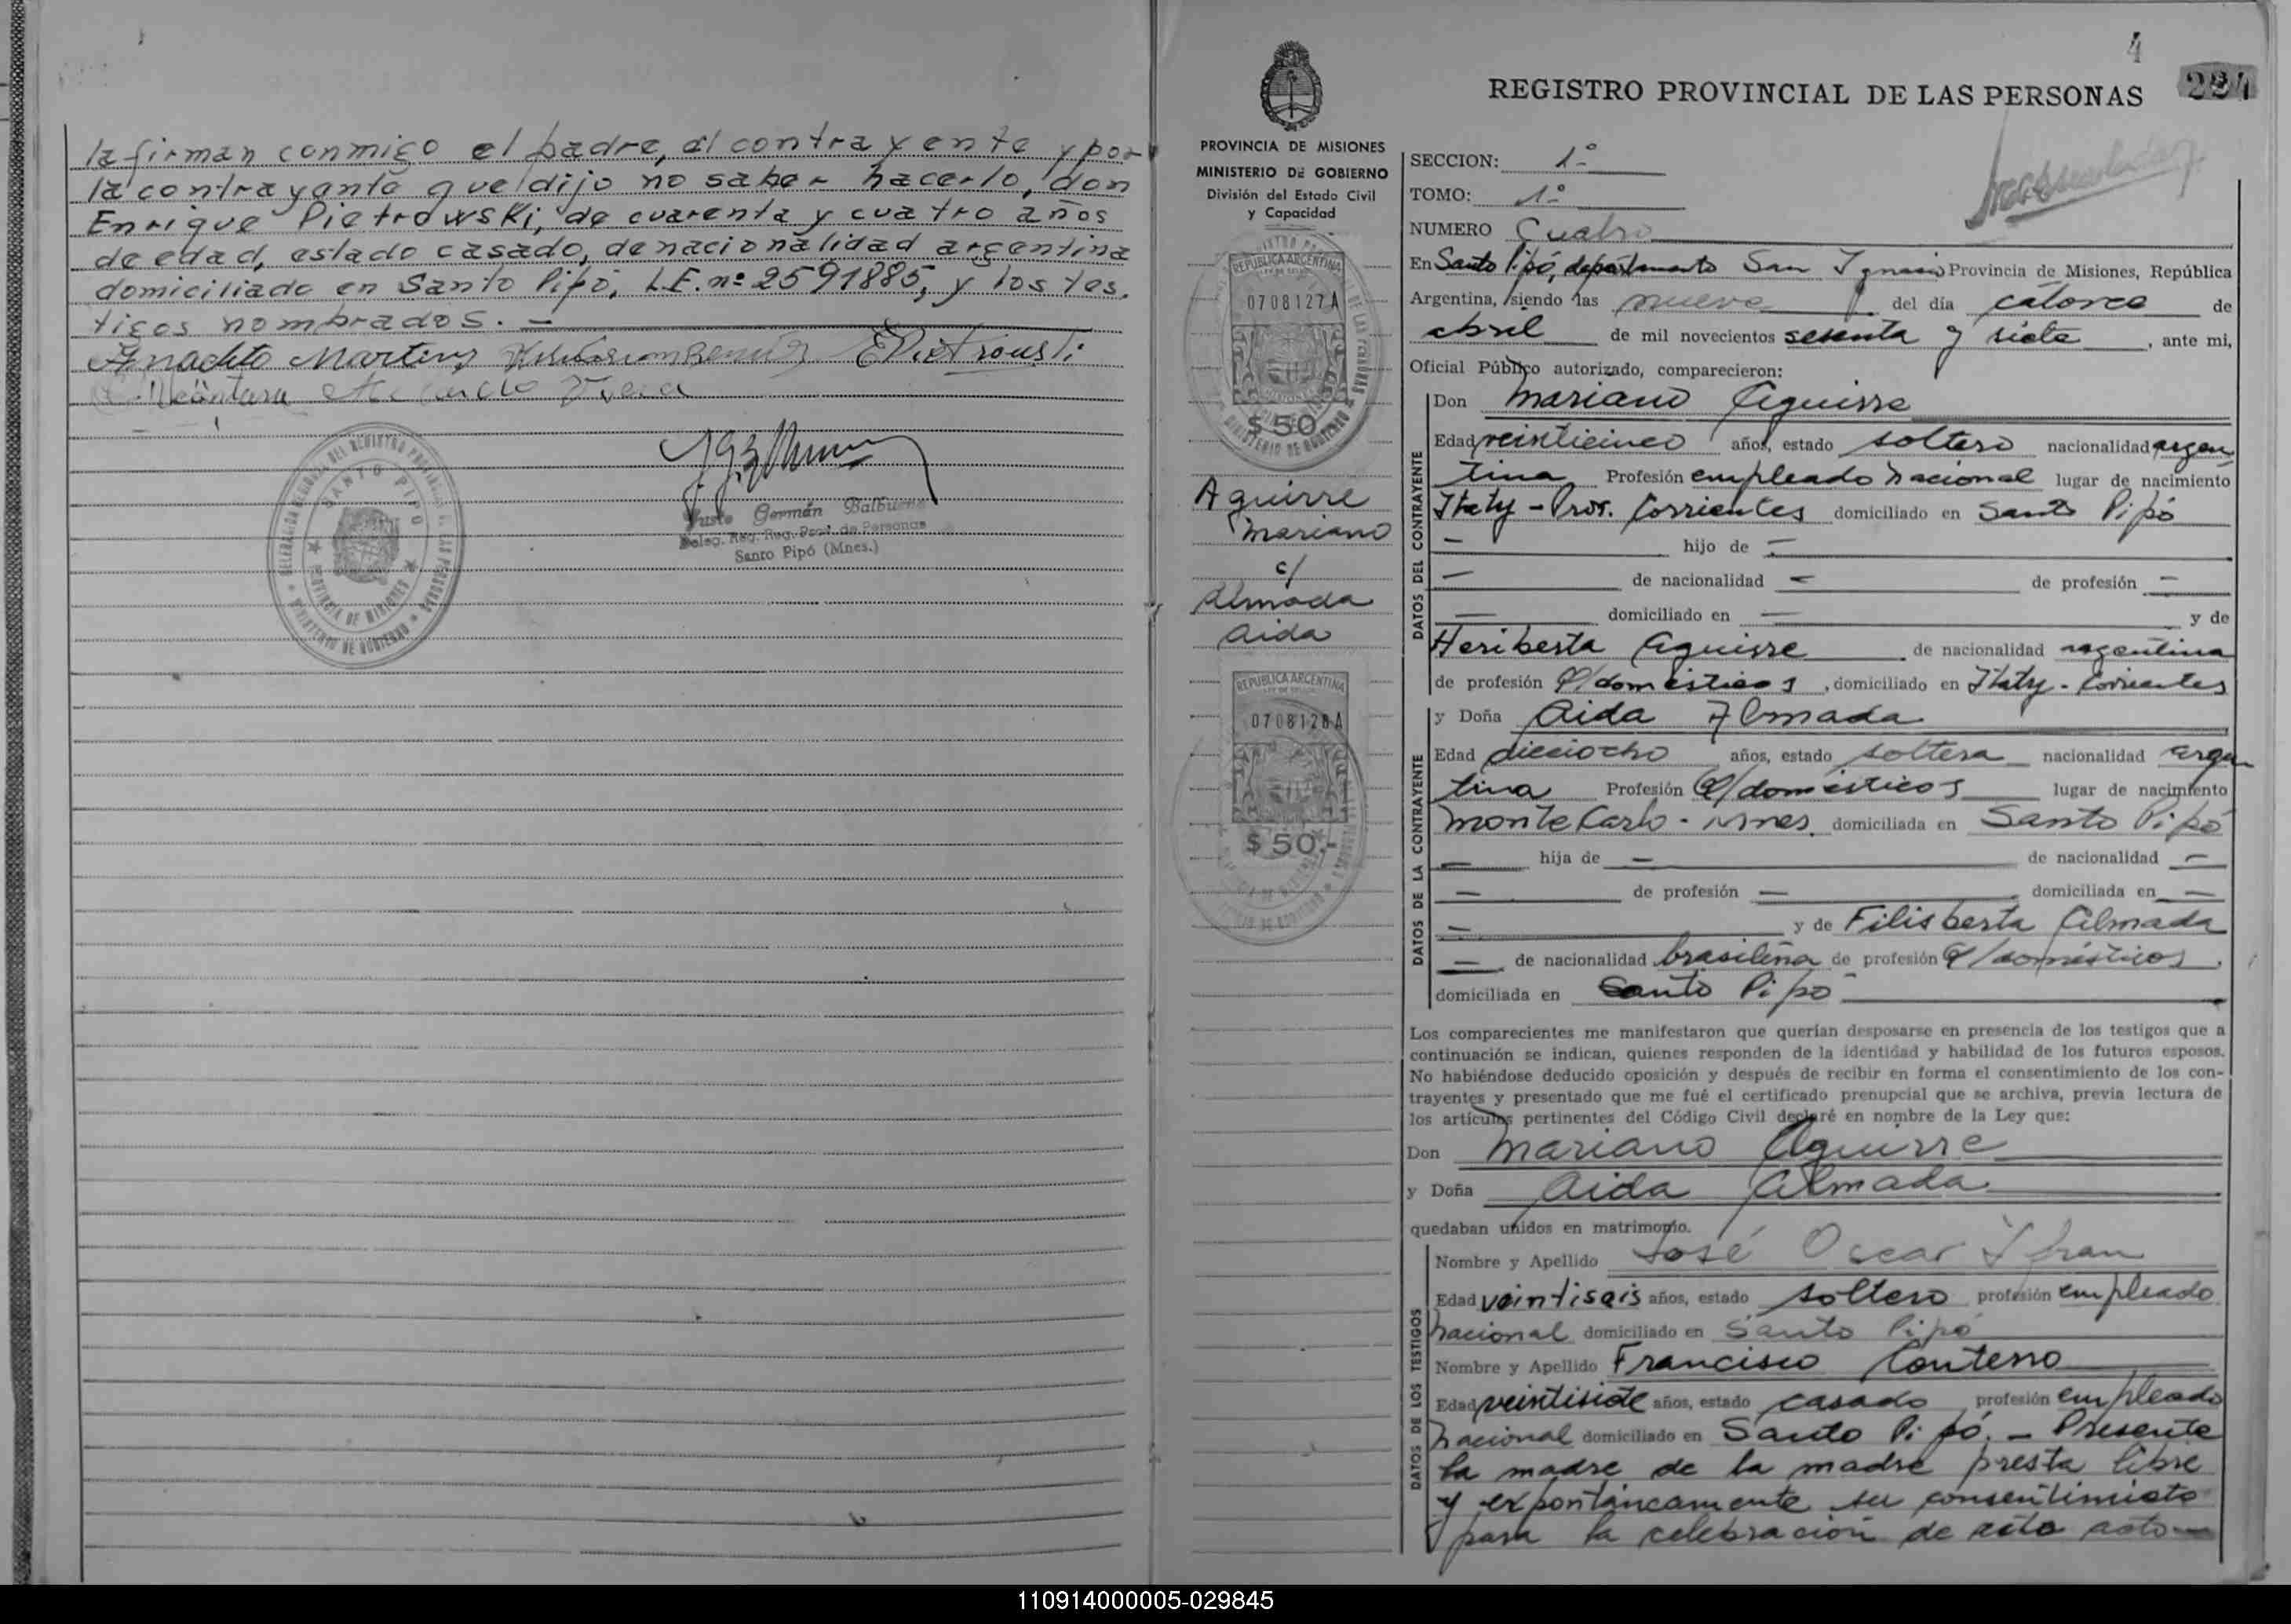 la firman conmigo el padre, el contrayente y por
la contrayente que dijo no saber hacerlo, don
Enrique Pietrowski, de cuarenta y cuatro años
de edad, estado casado, de nacionalidad argentina
domiciliado en Santo Pipó, L.E. nº 2591885, y los tes.
tigos nombrados. —
Anacleto Martinez EPietrouski
SANTO PIPO
PROVINCIA DE MISIONES
MINISTERIO DE GOBIERNO
Justo Germán Balbuena
Deleg. Reg. Prov. de Personas
Santo Pipó (Mnes.)
4
224
REGISTRO PROVINCIAL DE LAS PERSONAS
PROVINCIA DE MISIONES
MINISTERIO DE GOBIERNO
División del Estado Civil
y Capacidad
REPUBLICA ARGENTINA
0708127A
$ 50
Aguirre
Mariano
c/
Almada
Aida
REPUBLICA ARGENTINA
0708128A
$ 50.-
SECCION: 1º
TOMO: 1º
NUMERO Cuatro
En Santo Pipó, departamento San Ignacio Provincia de Misiones, República
Argentina, siendo las nueve del día catorce de
abril de mil novecientos sesenta y siete, ante mi,
Oficial Público autorizado, comparecieron:
DATOS DEL CONTRAYENTE
Don Mariano Aguirre
Edad veinticinco años, estado soltero nacionalidad argen
tina Profesión empleado nacional lugar de nacimiento
Itaty - Prov. Corrientes domiciliado en Santo Pipó
— hijo de —
— de nacionalidad — de profesión —
— domiciliado en — y de
Heriberta Aguirre de nacionalidad argentina
de profesión Q/domésticos, domiciliado en Itaty - Corrientes
DATOS DE LA CONTRAYENTE
y Doña Aida Almada
Edad dieciocho años, estado soltera nacionalidad argen
tina Profesión Q/domésticos lugar de nacimiento
Monte Carlo - Mnes. domiciliada en Santo Pipó
— hija de — de nacionalidad —
— de profesión — domiciliada en —
— y de Filisberta Almada
— de nacionalidad brasileña de profesión Q/domésticos,
domiciliada en Santo Pipó
Los comparecientes me manifestaron que querían desposarse en presencia de los testigos que a
continuación se indican, quienes responden de la identidad y habilidad de los futuros esposos.
No habiéndose deducido oposición y después de recibir en forma el consentimiento de los con-
trayentes y presentado que me fué el certificado prenupcial que se archiva, previa lectura de
los artículos pertinentes del Código Civil declaré en nombre de la Ley que:
Don Mariano Aguirre
y Doña Aida Almada
quedaban unidos en matrimonio.
DATOS DE LOS TESTIGOS
Nombre y Apellido José Oscar Ifran
Edad veintiseis años, estado soltero profesión empleado
nacional domiciliado en Santo Pipó
Nombre y Apellido Francisco Contero
Edad veintisiete años, estado casado profesión empleado
nacional domiciliado en Santo Pipó. - Presente
la madre de la madre presta libre
y expontáneamente su consentimiento
para la celebración de este acto —
110914000005-029845